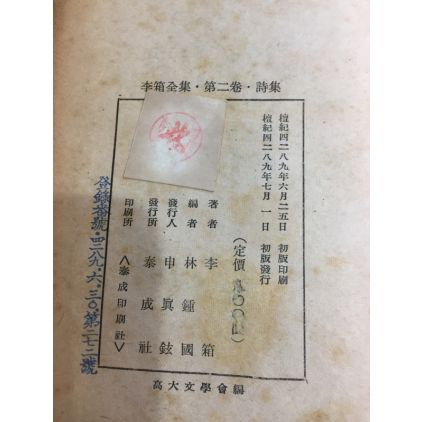 李箱全集・第二卷・詩集
檀紀四二八九年六月二五日 初版印刷
檀紀四二八九年七月 一日 初版發行
(定價 〇〇圜)
著者 李箱
編者 林鍾國
發行人 申眞鉉
發行所 泰成社
印刷所 <泰成印刷社>
登錄番號・四二八九・六・三〇・第二七二號
高大文學會編